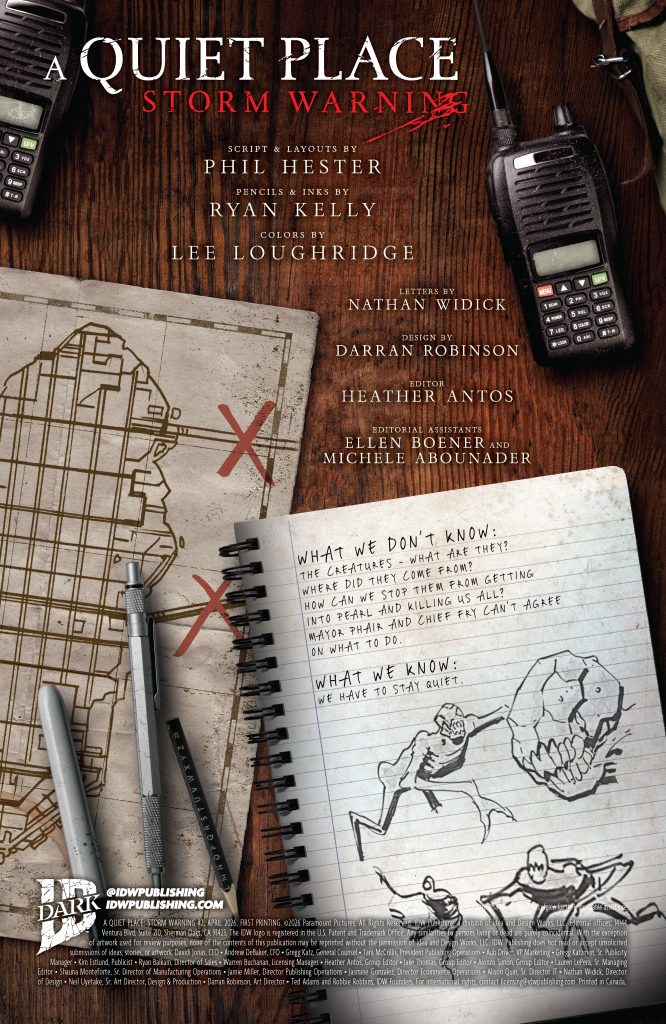 A QUIET PLACE
STORM WARNING
SCRIPT & LAYOUTS BY
PHIL HESTER
PENCILS & INKS BY
RYAN KELLY
COLORS BY
LEE LOUGHRIDGE
LETTERS BY
NATHAN WIDICK
DESIGN BY
DARRAN ROBINSON
EDITOR
HEATHER ANTOS
EDITORIAL ASSISTANTS
ELLEN BOENER AND
MICHELE ABOUNADER
WHAT WE DON'T KNOW:
THE CREATURES - WHAT ARE THEY?
WHERE DID THEY COME FROM?
HOW CAN WE STOP THEM FROM GETTING
INTO PEARL AND KILLING US ALL?
MAYOR PHAIR AND CHIEF FRY CAN'T AGREE
ON WHAT TO DO.
WHAT WE KNOW:
WE HAVE TO STAY QUIET.
DARK
@IDWPUBLISHING
IDWPUBLISHING.COM
A QUIET PLACE: STORM WARNING #2. APRIL 2026. FIRST PRINTING. ©2026 Paramount Pictures. All Rights Reserved. IDW Publishing, a division of Idea and Design Works, LLC. Editorial offices: 14144
Ventura Blvd, Suite 210, Sherman Oaks, CA 91423. The IDW logo is registered in the U.S. Patent and Trademark Office. Any similarities to persons living or dead are purely coincidental. With the exception
of artwork used for review purposes, none of the contents of this publication may be reprinted without the permission of Idea and Design Works, LLC. IDW Publishing does not read or accept unsolicited
submissions of ideas, stories, or artwork. David Jonas, CEO • Andrew DeBaker, CFO • Gregg Katz, General Counsel • Tara McCrillis, President Publishing Operations • Aub Driver, VP Marketing • Gregg Katzman, Sr. Publicity
Manager • Kim Estlund, Publicist • Ryan Balkan, Director of Sales • Warren Buchanan, Licensing Manager • Heather Antos, Group Editor • Jake Thomas, Group Editor • Alonzo Simon, Group Editor • Lauren LePera, Sr. Managing
Editor • Shauna Monteforte, Sr. Director of Manufacturing Operations • Jamie Miller, Director Publishing Operations • Jasmine Gonzalez, Director Ecommerce Operations • Alison Quin, Sr. Director IT • Nathan Widick, Director
of Design • Neil Uyetake, Sr. Art Director, Design & Production • Darran Robinson, Art Director • Ted Adams and Robbie Robbins, IDW Founders. For international rights, contact licensing@idwpublishing.com. Printed in Canada.